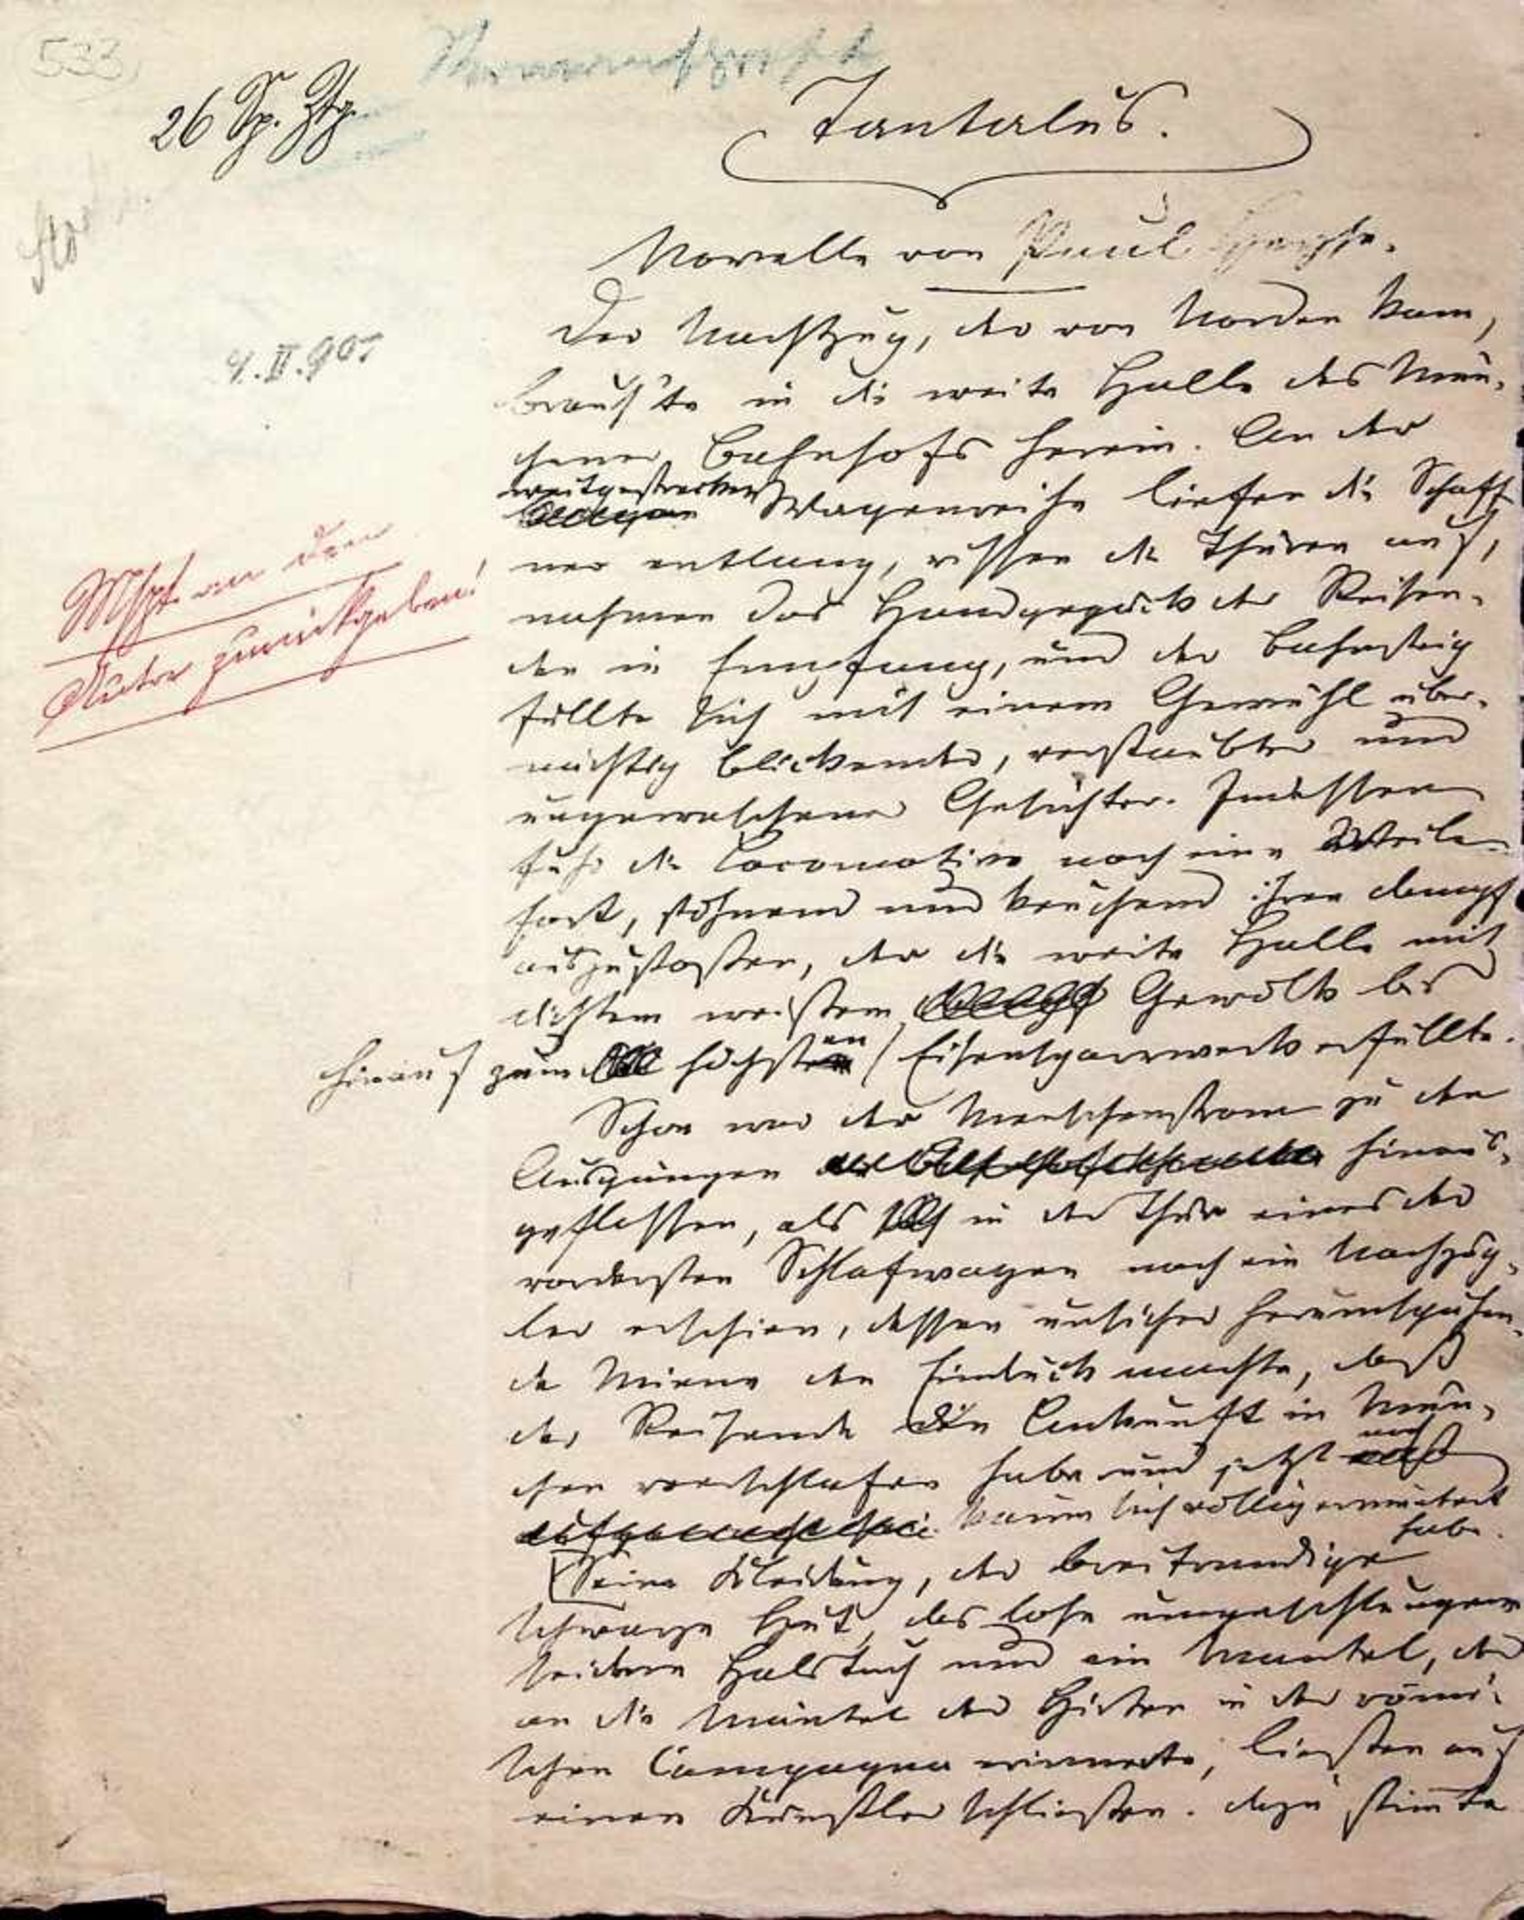 533
26 Sp. Ztg.
Tantalus.
Novelle von Paul Heyse.
4. II. 901
Der Nachtzug, der von Norden kam,
braus'te in die weite Halle des Mün-
chener Bahnhofs herein. An der
weitgestreckten Wagenreihe liefen die Schaff-
ner entlang, rissen die Thüren auf,
nahmen das Handgepäck der Reisen-
den in Empfang, und der Bahnsteig
füllte sich mit einem Gewühl über-
nächtig blickender, verstaubter und
ungewaschener Gesichter. Indessen
fuhr die Locomotive noch eine Weile
fort, stöhnend und keuchend ihren Dampf
auszustoßen, der die weite Halle mit
dichtem weißem Gewölk bis
hinauf zum höchsten Eisensparrwerk erfüllte.
Mspt. an den
Autor zurückgeben!
Schon war der Menschenstrom zu den
Ausgängen hinaus-
geflossen, als in der Thür eines der
vordersten Schlafwagen noch ein Nachzüg-
ler erschien, dessen unsicher herumspähen-
de Miene den Eindruck machte, daß
der Reisende die Ankunft in Mün-
chen verschlafen habe und jetzt noch
kaum sich völlig ermuntert
habe.
Seine Kleidung, der breitrandige
schwarze Hut, das lose umgeschlungene
seidene Halstuch und ein Mantel, der
an die Mäntel der Hirten in der römi-
schen Campagna erinnerte, ließen auf
einen Künstler schließen. Dazu stimmte